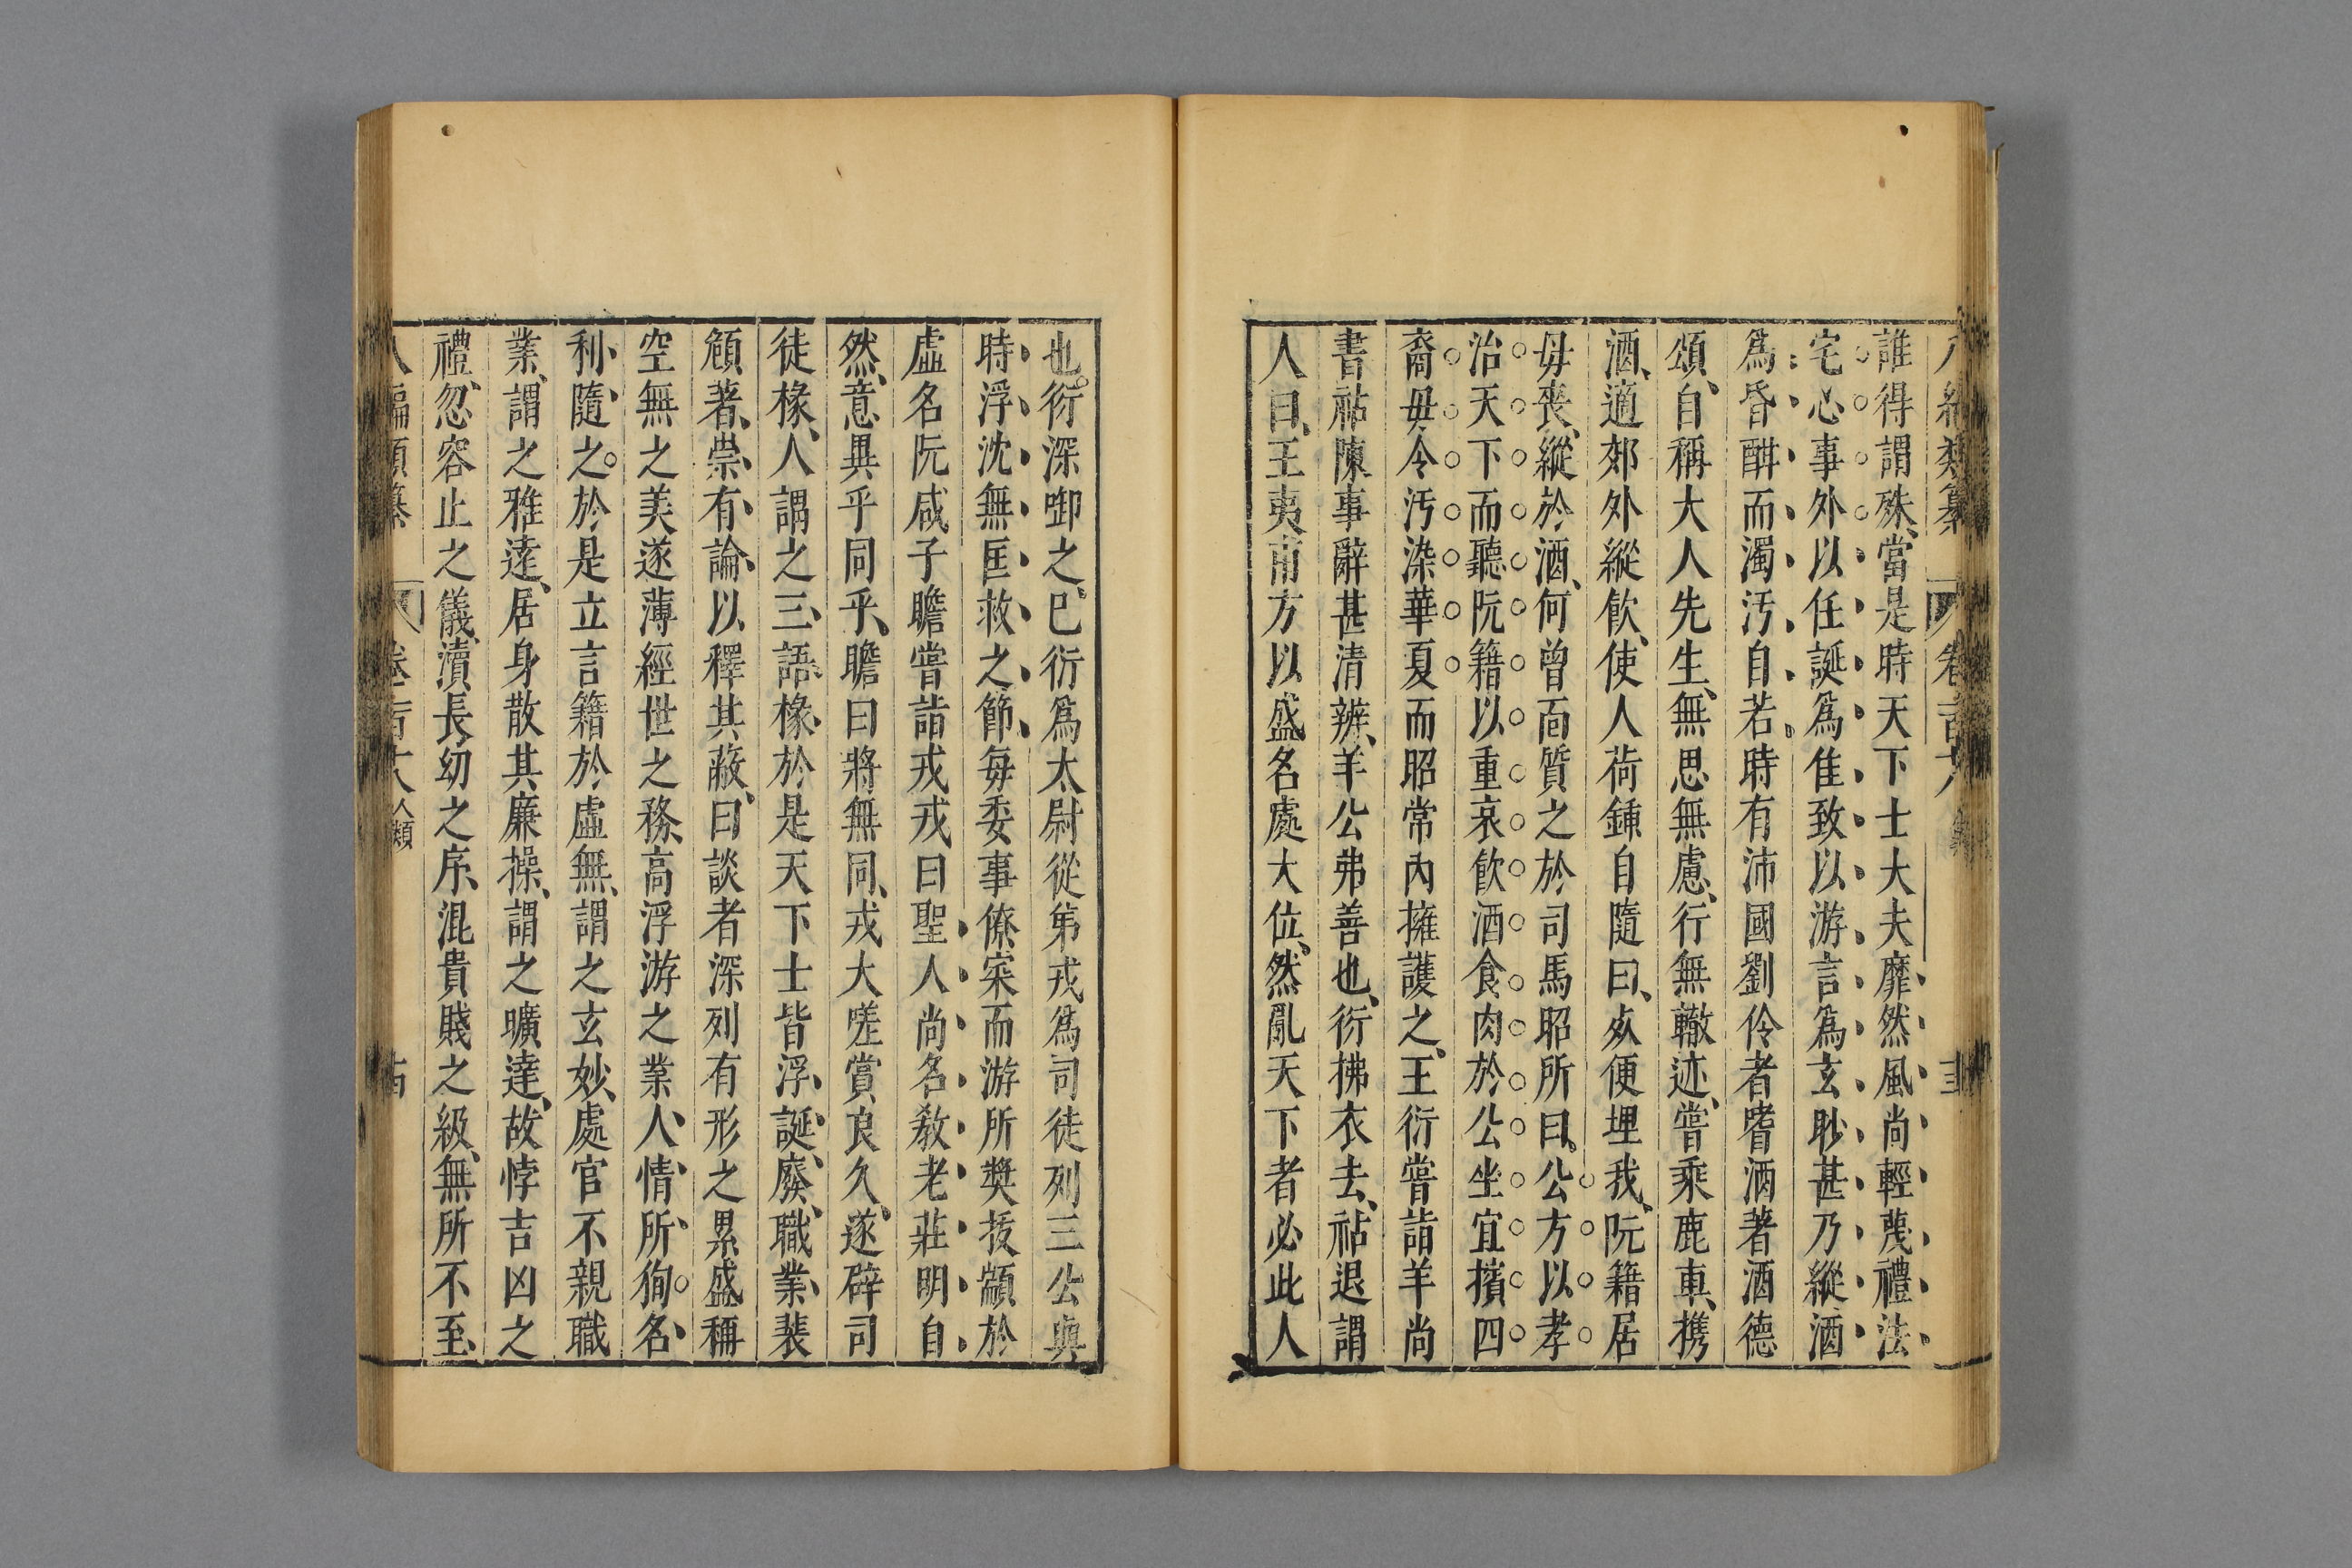 八編類纂 卷六
誰得謂殊、當是時天下士大夫靡然風尚輕蔑禮法
宅心事外以任誕爲佳致以游言爲玄眇甚乃縱酒
爲昏酣而濁汚自若時有沛國劉伶者嗜酒著酒德
頌、自稱大人先生、無思無慮、行無轍迹、嘗乘鹿車、携
酒、適郊外縱飲、使人荷鍤自隨曰、死便埋我、阮籍居
毋喪、縱於酒、何曾面質之於司馬昭所曰、公方以孝
治天下而聽阮籍以重哀飲酒食肉於公坐宜擯四
裔毋令汚染華夏而昭常內擁護之、王衍嘗詣羊尚
書祜陳事辭甚清辨、羊公弗善也、衍拂衣去、祜退謂
人曰、王夷甫方以盛名處大位、然亂天下者必此人
也。衍深啣之、巳衍爲太尉從弟戎爲司徒列三公與
時浮沈無匡救之節、每委事僚寀而游所獎拔顓於
虛名阮咸子瞻嘗詣戎戎曰聖人尚名教老莊明自
然、意異乎同乎、瞻曰將無同、戎大嗟賞良久、遂辟司
徒椽、人謂之三語椽於是天下士皆浮誕廢職業裴
頠著崇有論以釋其蔽、曰談者深列有形之累盛稱
空無之美遂薄經世之務、高浮游之業人情所狥名
利隨之。於是立言籍於虛無、謂之玄妙、處官不親職
業、謂之雅達、居身散其廉操、謂之曠達、故悖吉凶之
禮、忽容止之儀、瀆長幼之序、混貴賤之級、無所不至、
八編類纂 卷 六 人類